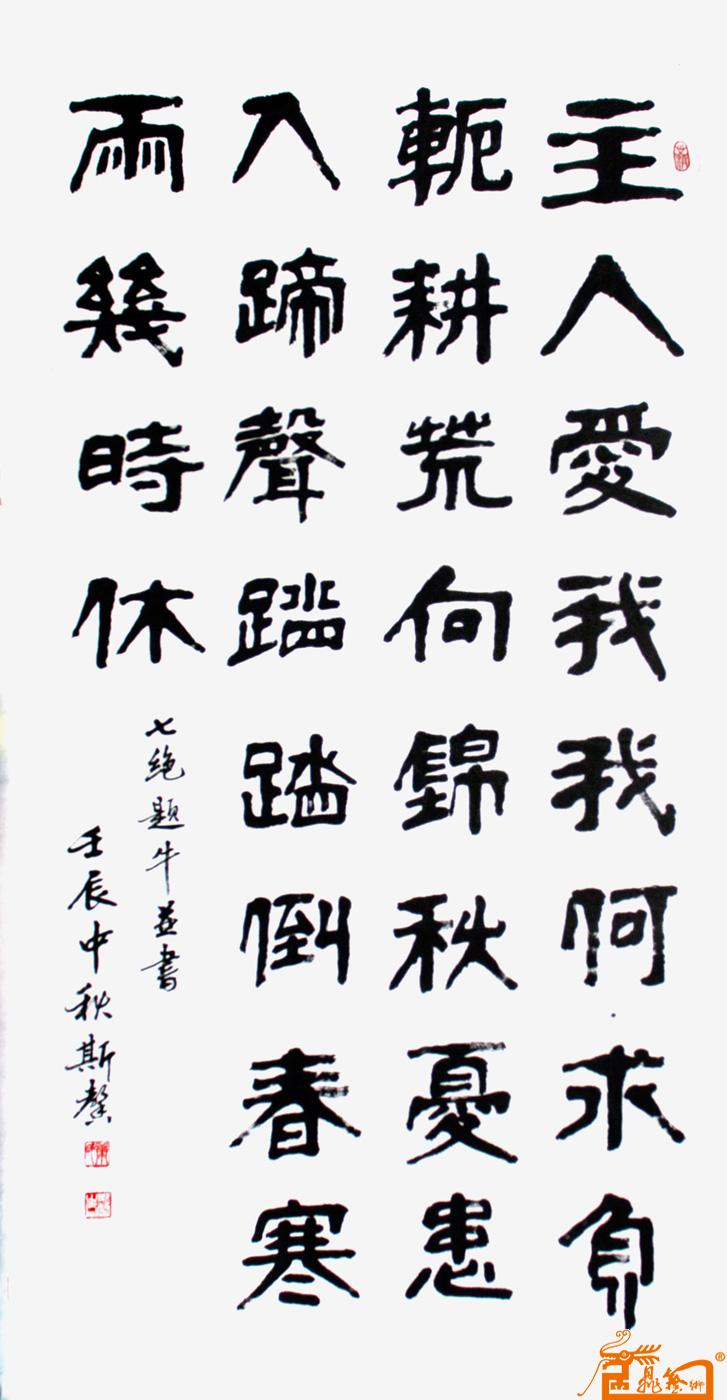 主人愛我我何求負
軛耕荒向錦秋憂患
入蹄聲踏踏倒春寒
雨幾時休
七絶題牛並書
壬辰中秋斯馨